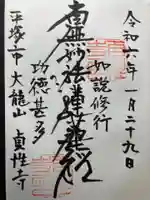 令和六年一月二十九日
如説修行
南無妙法蓮華経
功徳甚多
平塚市大龍山貞性寺